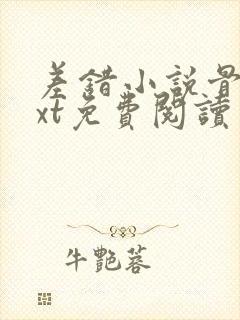 差錯小說骨
xt免費閱讀
牛艷蓉